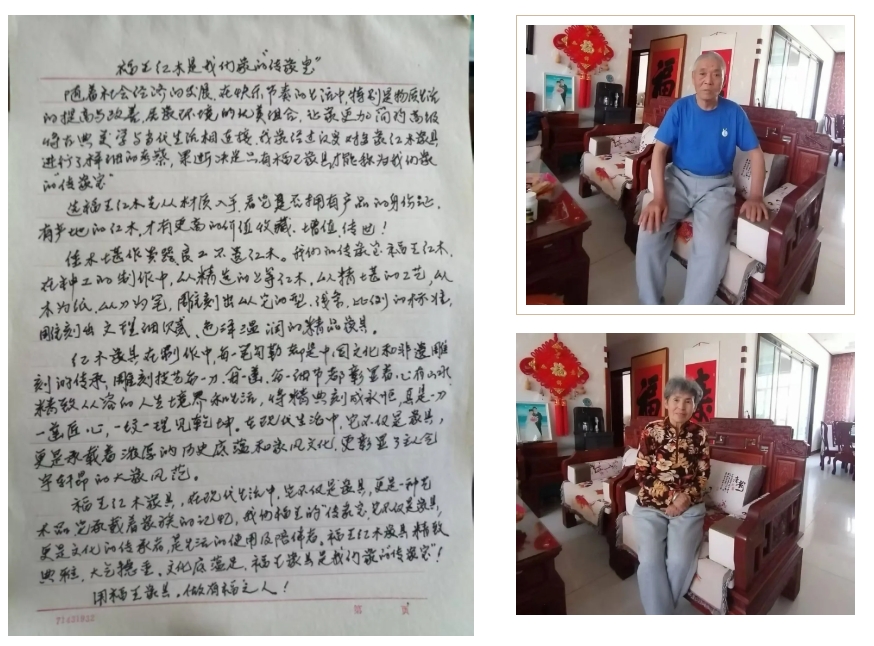 福王红木是我们家的"传家宝"
随着社会经济的发展,在快乐节奏的生活中,特别是物质生活
的提高与改善,居家环境的优美组合,让家更加简约高级
将古典美学与当代生活相连接,我家经过汉安对红木家具
进行了详细的考察,果断决定只有福王家具才能称为我们家
的"传家宝"
选福王红木先从材质入手,看它是否拥有产品的身份证,
有产地的红木才有更高的价值收藏、增值、传世!
佳木堪作贵器,良工不造红木。我们的传家宝福王红木,
在种工的制作中,从精选的上等红木,从精堪的工艺,从
木为纸,从刀为笔,雕刻出从它的型、线条、比例的标准,
雕刻出文理细腻、色泽温润的精品家具。
红木家具在制作中,每一笔勾勒都是中国文化和非遗雕
刻的传承,雕刻技艺每一刀、每一凿、每一细节都彰显着心有山水
精致从容的人生境界和生活,将精典刻成永恒,真是一刀
一凿匠心,一纹一理见乾坤。在现代生活中,它不仅是家具,
更是承载着浓厚的历史底蕴和家风文化,更彰显了
宇轩昂的大家风范。
福王红木家具,在现代生活中,它不仅是家具,更是一种艺
术品它承载着家族的记忆,我们福王的"传家宝"它不仅是家具,
更是文化的传承者,是生活的使用及陪伴者,福王红木家具精致
典雅,大气稳重,文化底蕴足,福王家具是我们家的"传家宝"!
用福王家具,做有福之人!
第 页
福
福